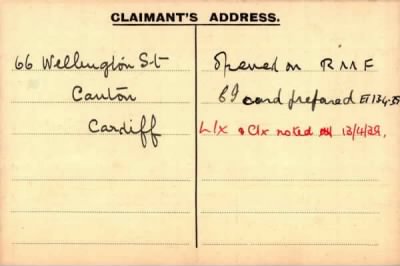 CLAIMANT'S ADDRESS.
66 Wellington St
Canton
Cardiff
Opened on R M F
CI card prepared 13-4-39
L/x & C/x noted 13/4/39.